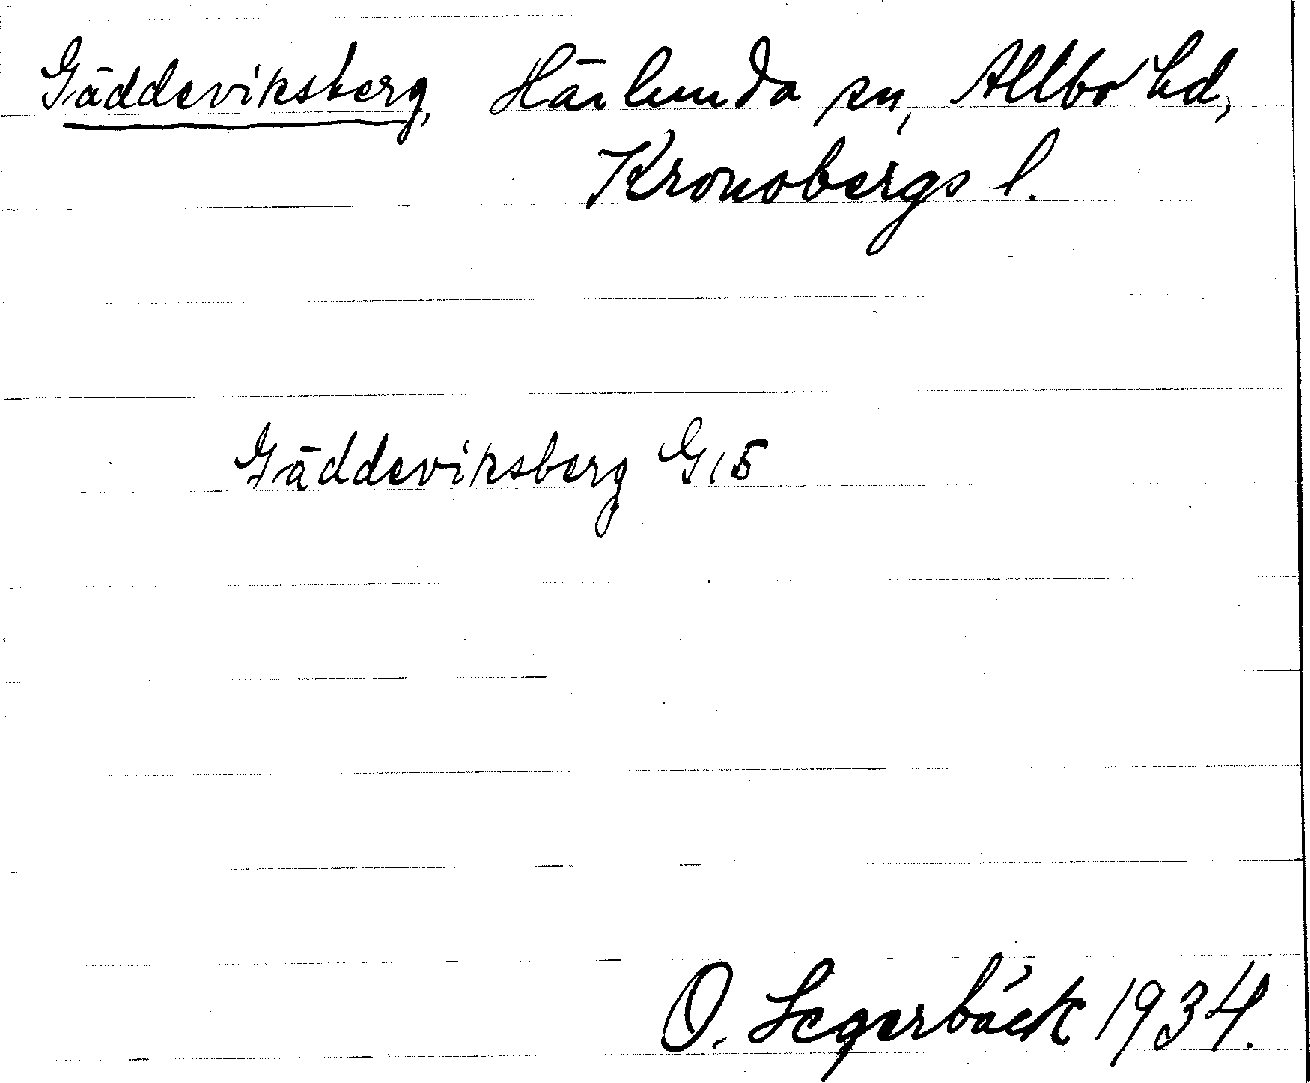 Gäddeviksberg, Härlunda sn, Allbo hd,
Kronobergs l.
Gäddeviksberg G 15
O. Segerbäck 1934.